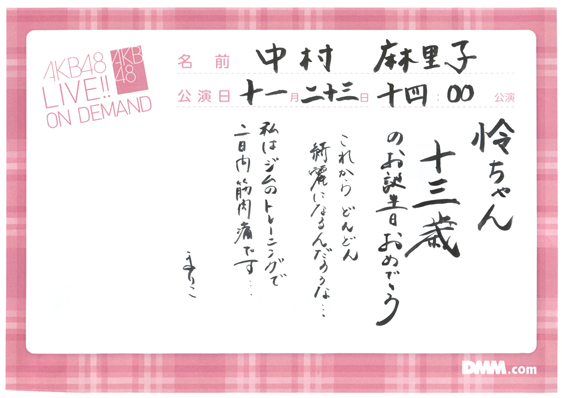 AKB48
LIVE!!
ON DEMAND
AKB
48
名前 中村 麻里子
公演日 十一月二十三日 十四:00 公演
怜ちゃん
十三歳
のお誕生日おめでとう
これから どんどん
綺麗になるんだろうな…
私はジムのトレーニングで
二日内筋肉痛です…
まりこ
DMM.com